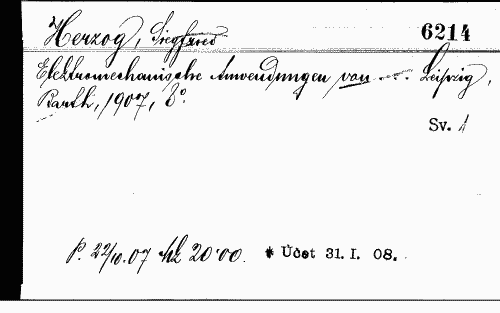 Herzog, Siegfried 6214
Elektromechanische Anwendungen von ... Leipzig,
Barth, 1907, 8°.
Sv. 1
P. 22/10.07 Mk 20·00. * Účet 31. I. 08.